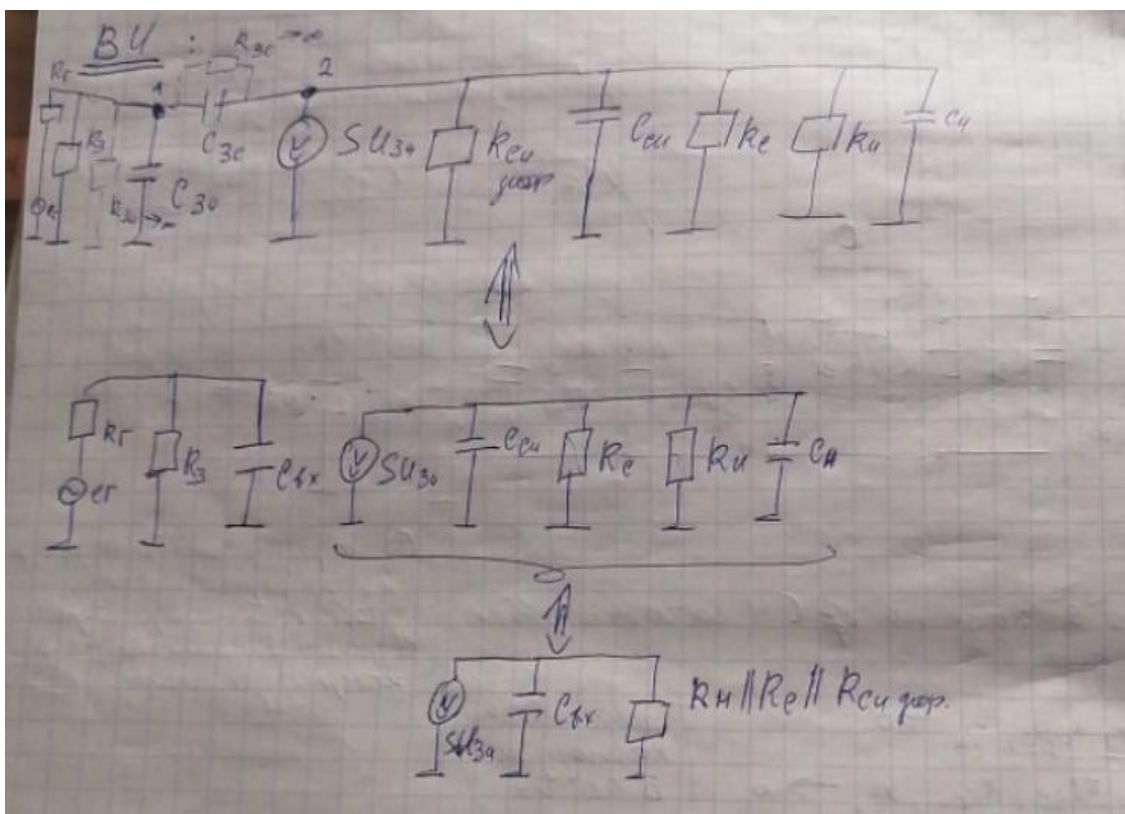 ВЧ :
Rзс →∞
Rг
1
2
Rз
Cзс
SUзи
Rси
диф
Cси
Rс
Rн
Cн
eг
Rзи →∞
Cзи
Rг
eг
Rз
Cвх
SUзи
Cси
Rс
Rн
Cн
SUзи
Cвх
Rн || Rс || Rси диф.